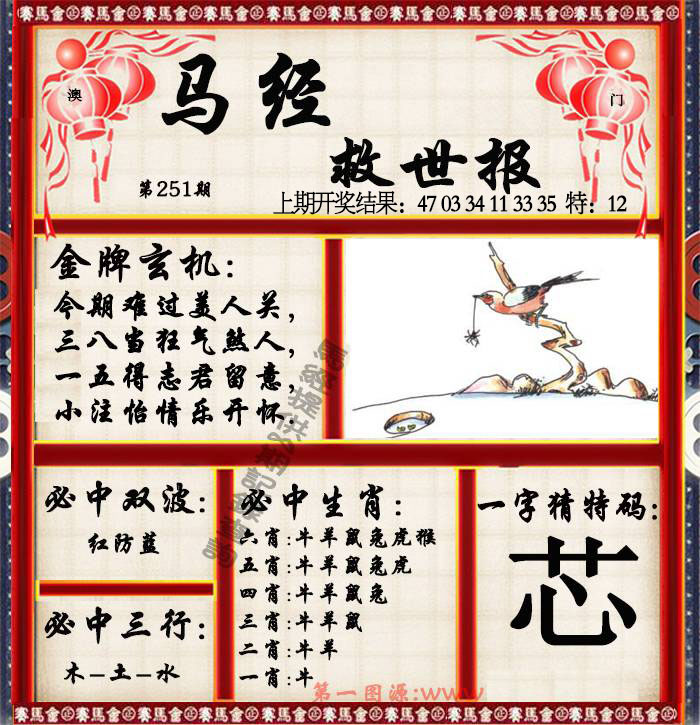 賽馬會金正賽馬會金正賽馬會金正賽馬會金正賽馬會金正賽馬會
澳
门
马经
救世报
第251期
上期开奖结果：47 03 34 11 33 35 特：12
金牌玄机：
今期难过美人关，
三八当狂气煞人，
一五得志君留意，
小注怡情乐开怀.
必中双波：
红防蓝
必中三行：
木–土–水
必中生肖：
六肖:牛羊鼠兔虎猴
五肖:牛羊鼠兔虎
四肖:牛羊鼠兔
三肖:牛羊鼠
二肖:牛羊
一肖:牛
一字猜特码:
芯
第一图源:www